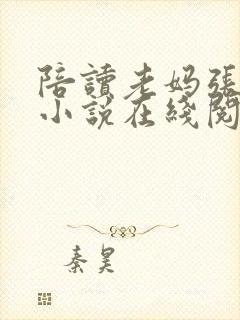 陪讀老媽張
小說在綫閱
秦昊